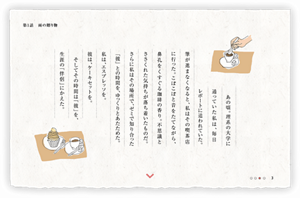 第1話 雨の贈り物
あの頃、理系の大学に
通っていた私は、毎日
レポートに追われていた。
筆が進まなくなると、私はその喫茶店
に行った。こぽこぽと音をたてながら、
鼻孔をくすぐる珈琲の香り。不思議と
ささくれた気持ちが落ち着いたものだ。
さらに私はその場所で、そこで知り合った
「彼」との時間を、ゆっくりとあたためた。
私は、エスプレッソを。
彼は、ケーキセットを。
そしてその時間は「彼」を、
生涯の「伴侶」にかえた。
3